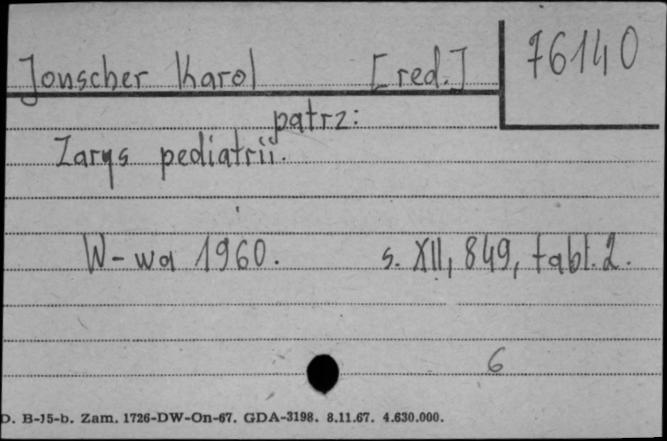 Jonscher Karol [red.] 76140
patrz:
Zarys pediatrii.
W-wa 1960. s. XII, 849, tabl. 2.
6
D. B-15-b. Zam. 1726-DW-On-67. GDA-3198. 8.11.67. 4.630.000.